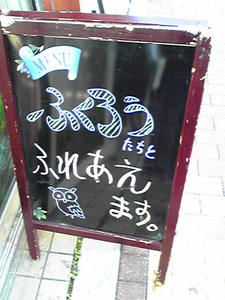 MENU
ふくろう
たちと
ふれあえ
ます。